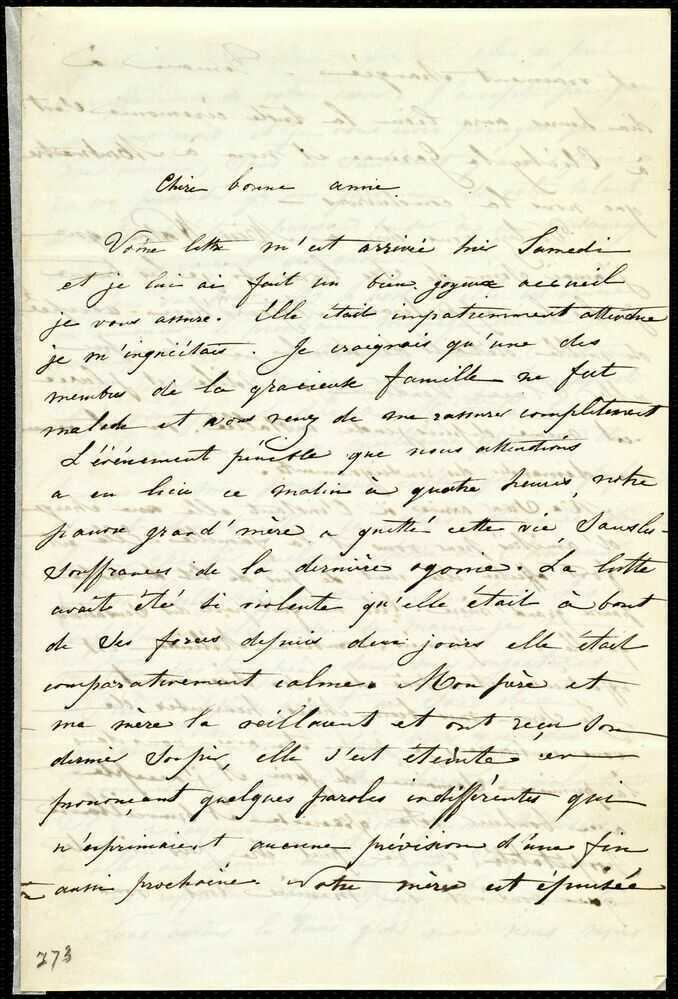 Chère bonne amie
Votre lettre m'est arrivée hier Samedi
et je lui ai fait un bien joyeux accueil
je vous assure. Elle était impatiemment attendue
je m'inquiétais. Je craignais qu'une des
membres de la gracieuse famille ne fut
malade et vous venez de me rassurer complètement
L'événement pénible que nous attendions
a eu lieu ce matin à quatre heures, notre
pauvre grand'mère a quitté cette vie, sans les
souffrances de la dernière agonie. La lutte
avait été si violente qu'elle était à bout
de ses forces depuis deux jours elle était
comparativement calme. Mon père et
ma mère la veillaient et ont reçu son
dernier soupir, elle s'est éteinte en
prononçant quelques paroles indifférentes qui
n'exprimaient aucune prévision d'une fin
aussi prochaine. Notre mère est épuisée
273